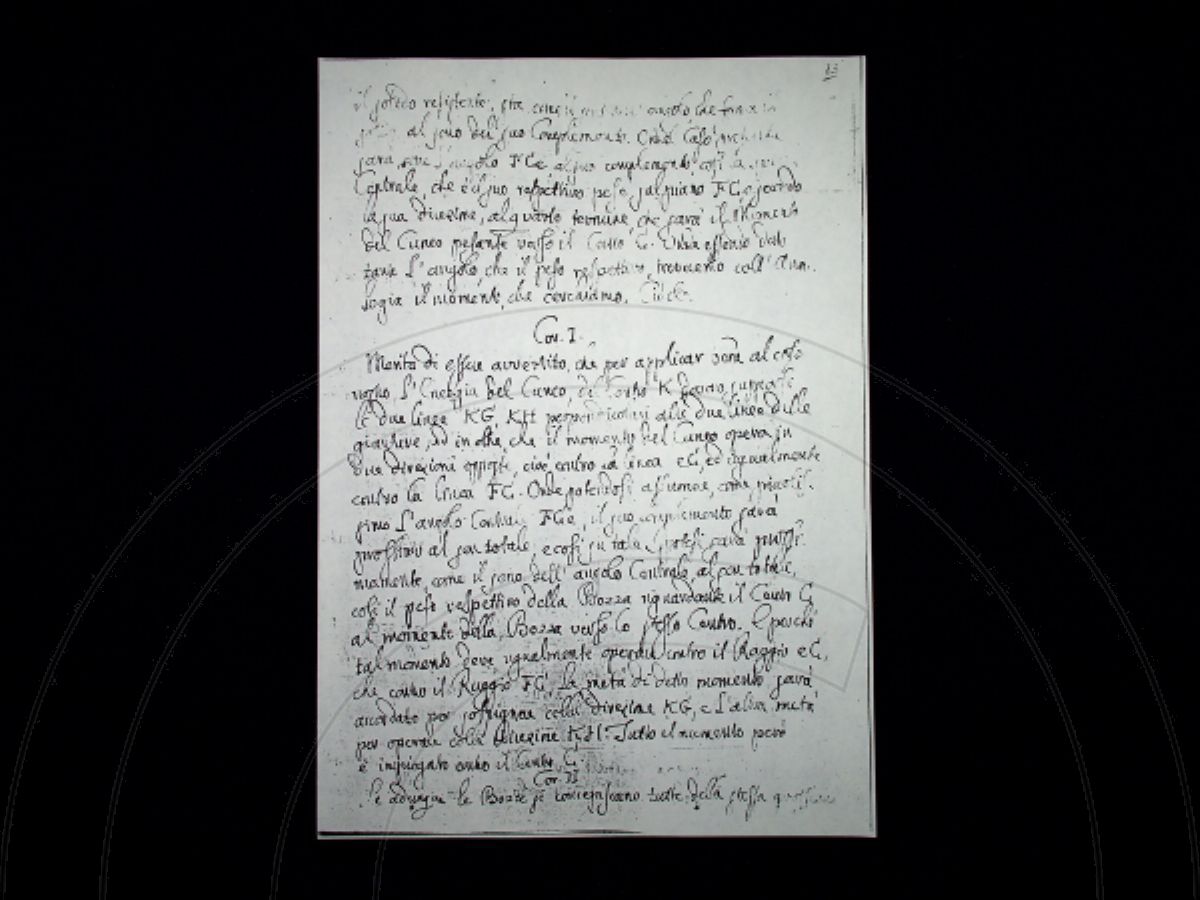 il sodo resistente, sta che fa
al seno del suo Complemento. Onde
sarà angolo FGe al suo complemento, così la
Centrale, che è il suo respettivo peso, sul piano FG secondo
la sua direzione, al quarto termine che sarà il Momento
del Cuneo pesante verso il Centro G. Onde essendo
l'angolo, che il peso respettivo, troveremo coll' Ana-
logia il momento, che cerchiamo.
Cor. I.
Merita di esser avvertito, che per applicar bene al caso
nostro l'Energia del Cuneo, dal Centro K
le due linee KG, KH perpendicolari alle due linee delle
giunture, ed inoltre, che il momento del Cuneo opera in
due direzioni opposte, cioè contro la linea eG, ed ugualmente
contro la linea FG. Onde potendosi assumer, come piccolis-
simo l'angolo Centrale FGe, il suo complemento sarà
prossimo al sen totale, e così in tale sarà prossi-
mamente, come il seno dell' angolo Centrale al sen totale,
così il peso respettivo della Bozza riguardante il Centro G
al momento della Bozza verso lo stesso Centro. E perché
tal momento deve ugualmente operare contro il Raggio eG,
che contro il Raggio FG, la metà di detto momento sarà
accordato per colla direzione KG, e l'altra metà
per operare colla direzione KH. Tutto il momento però
è impiegato contro il Centro G.
Cor. II
Se adunque le Bozze si tutte della stessa